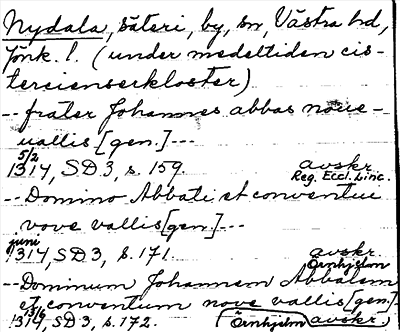 Nydala, säteri, by, sn, Västra hd,
Jönk. l. (under medeltiden cis-
terciensերkloster)
-- frater Johannes abbas noue-
uallis [gen.] ---
5/2
1314, SD 3, s. 159. avskr.
Reg. Eccl. Linc.
-- Domino Abbati et conventui
nove vallis [gen.] ---
juni
1314, SD 3, s. 171. avskr.
Örnhjelm
-- Dominum Johannem Abbatem
et conventum nove vallis [gen.]
13/6
1314, SD 3, s. 172. (Örnhjelm avskr.)